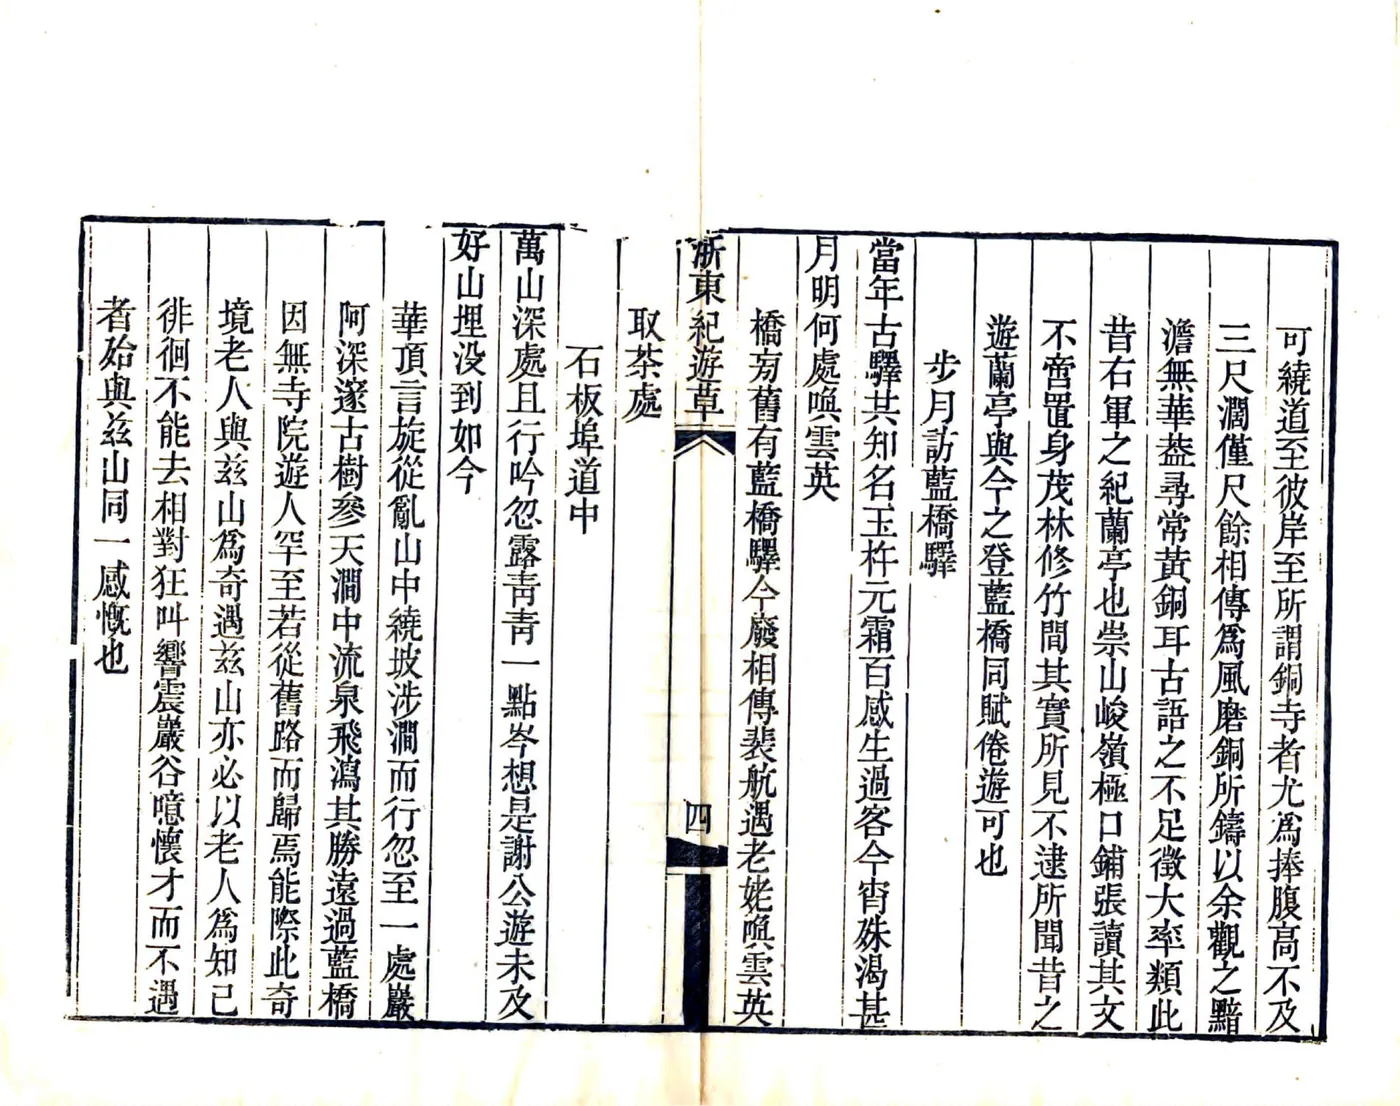 可繞道至彼岸至所謂銅寺者尤為捧腹高不及
三尺濶僅尺餘相傳爲風磨銅所鑄以余觀之黯
澹無華葢尋常黃銅耳古語之不足徵大率類此
昔右軍之紀蘭亭也崇山峻嶺極口鋪張讀其文
不啻置身茂林修竹間其實所見不逮所聞昔之
遊蘭亭與今之登藍橋同賦倦遊可也
步月訪藍橋驛
當年古驛其知名玉杵元霜百感生過客今宵姝渴甚
月明何處喚雲英
橋旁舊有藍橋驛今廢相傳裴航遇老姥喚雲英
浙東紀遊草
四
取茶處
石板埠道中
萬山深處且行吟忽露靑靑一點岑想是謝公遊未及
好山埋没到如今
華頂言旋從亂山中繞坡涉澗而行忽至一處巖
阿深邃古樹參天澗中流泉飛瀉其勝遠過藍橋
因無寺院遊人罕至若從舊路而歸焉能際此奇
境老人與兹山爲奇遇兹山亦必以老人爲知己
徘徊不能去相對狂叫響震巖谷噫懷才而不遇
者殆與兹山同一感慨也